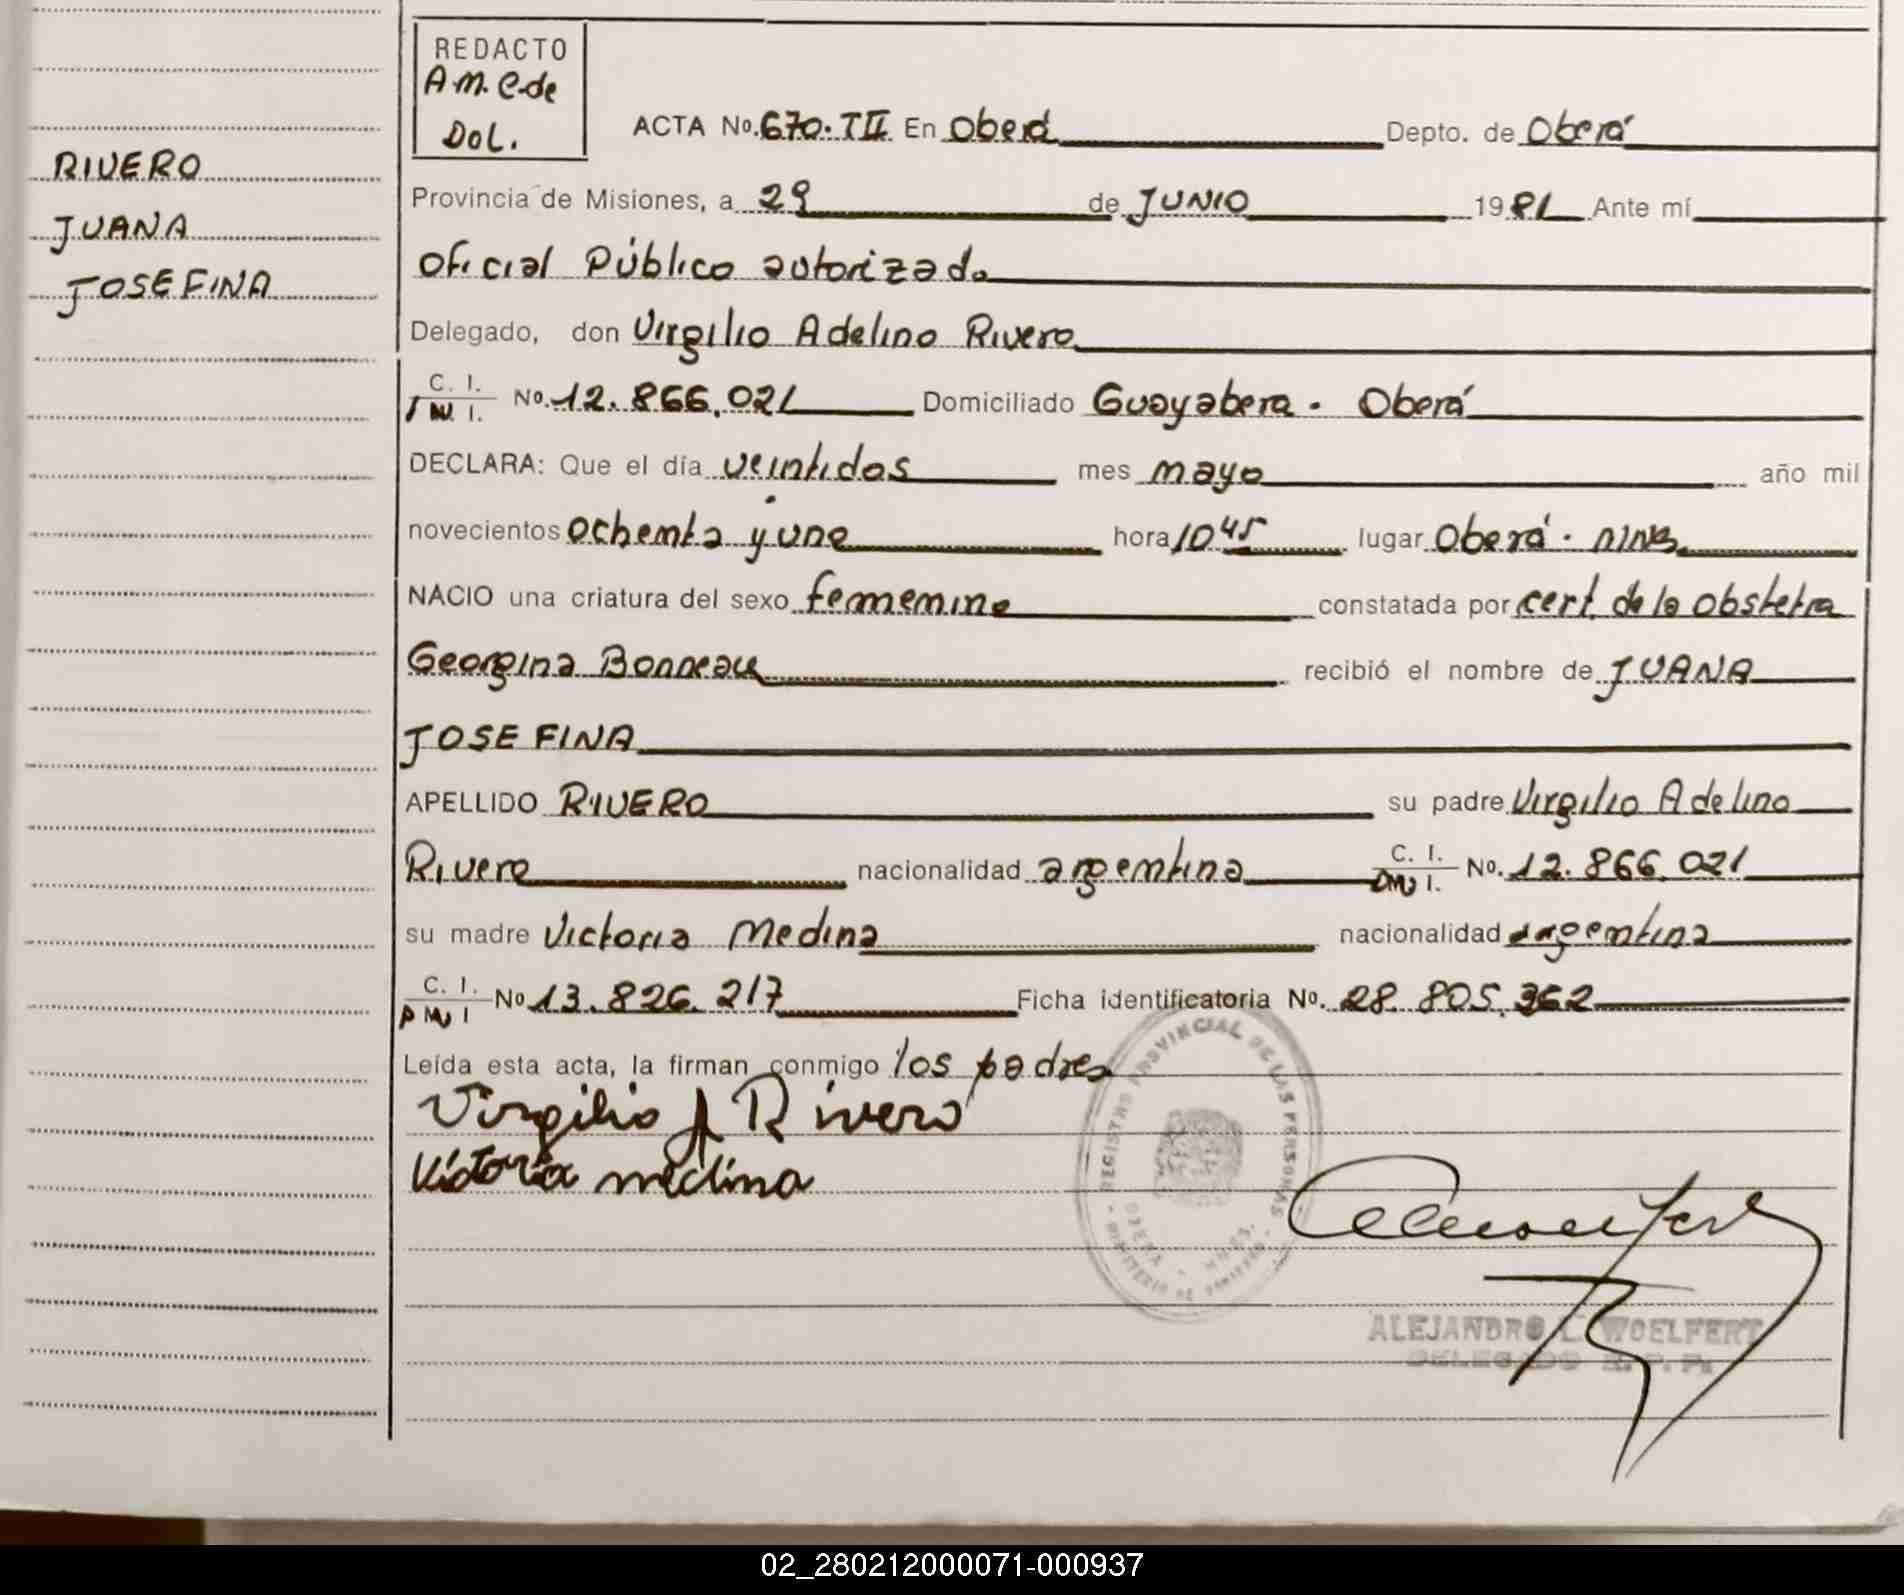 REDACTO
A.M.C. de
Dol.
ACTA No. 670. TII En Oberá Depto. de Oberá
RIVERO
Provincia de Misiones, a 29 de JUNIO 1981 Ante mí
JUANA
oficial Público autorizado
JOSEFINA
Delegado, don Virgilio Adelino Rivero
C. I.
D.M. I. No. 12.866.021 Domiciliado Guayabera. Oberá
DECLARA: Que el día veintidos mes mayo año mil
novecientos ochenta y uno hora 10 45 lugar Oberá.
NACIO una criatura del sexo femenino constatada por cert. de la obstetra
Georgina Bonneau recibió el nombre de JUANA
JOSEFINA
APELLIDO RIVERO su padre Virgilio Adelino
Rivero nacionalidad argentina C. I. DM I. No. 12.866.021
su madre Victoria Medina nacionalidad argentina
C. I. DM I No 13.826.217 Ficha identificatoria No. 28.805.362
Leída esta acta, la firman conmigo los padres
Virgilio A Rivero
Victoria medina
REGISTRO PROVINCIAL DE LAS PERSONAS
OBERA - MNES.
MINISTERIO DE GOBIERNO
ALEJANDRO L. WOELFERT
DELEGADO R. P. P.
02_280212000071-000937